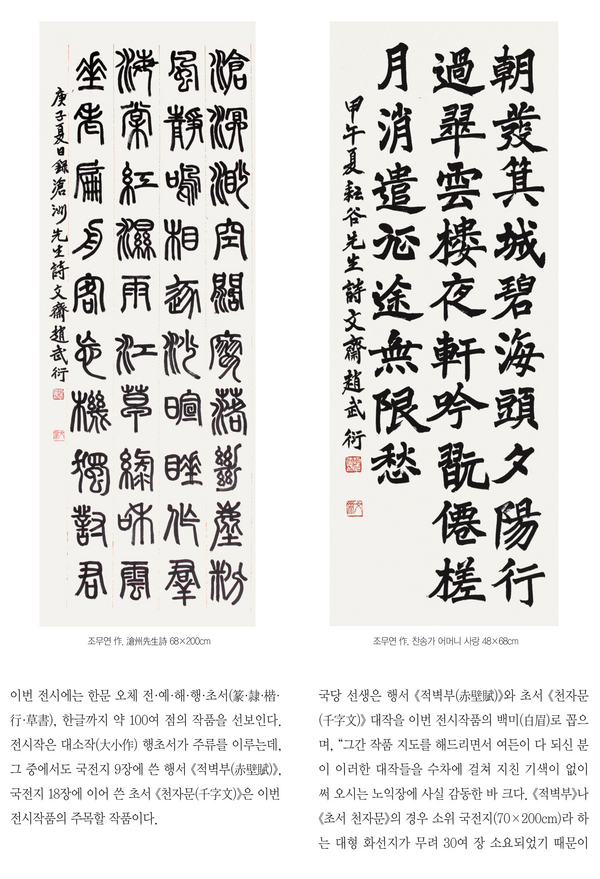 滄溟渺空闊寥落斷塵
風靜鳴相逐沙暄睡作群
海棠紅濕雨江草綠和雲
垂老扁舟客忘機獨對君
庚子夏日錄滄洲先生詩文齋趙武衍
조무연 作, 滄州先生詩 68×200cm
朝發箕城碧海頭夕陽行
過翠雲樓夜軒吟翫僊槎
月消遣征途無限愁
甲午夏耘谷先生詩文齋趙武衍
조무연 作, 찬송가 어머니 사랑 48×68cm
이번 전시에는 한문 오체 전·예·해·행·초서(篆·隷·楷·
行·草書), 한글까지 약 100여 점의 작품을 선보인다.
전시작은 대소작(大小作) 행초서가 주류를 이루는데,
그 중에서도 국전지 9장에 쓴 행서 《적벽부(赤壁賦)》,
국전지 18장에 이어 쓴 초서 《천자문(千字文)》은 이번
전시작품의 주목할 작품이다.
국당 선생은 행서 《적벽부(赤壁賦)》와 초서 《천자문
(千字文)》 대작을 이번 전시작품의 백미(白眉)로 꼽으
며, “그간 작품 지도를 해드리면서 여든이 다 되신 분
이 이러한 대작들을 수차에 걸쳐 지친 기색이 없이
써 오시는 노익장에 사실 감동한 바 크다. 《적벽부》나
《초서 천자문》의 경우 소위 국전지(70×200cm)라 하
는 대형 화선지가 무려 30여 장 소요되었기 때문이